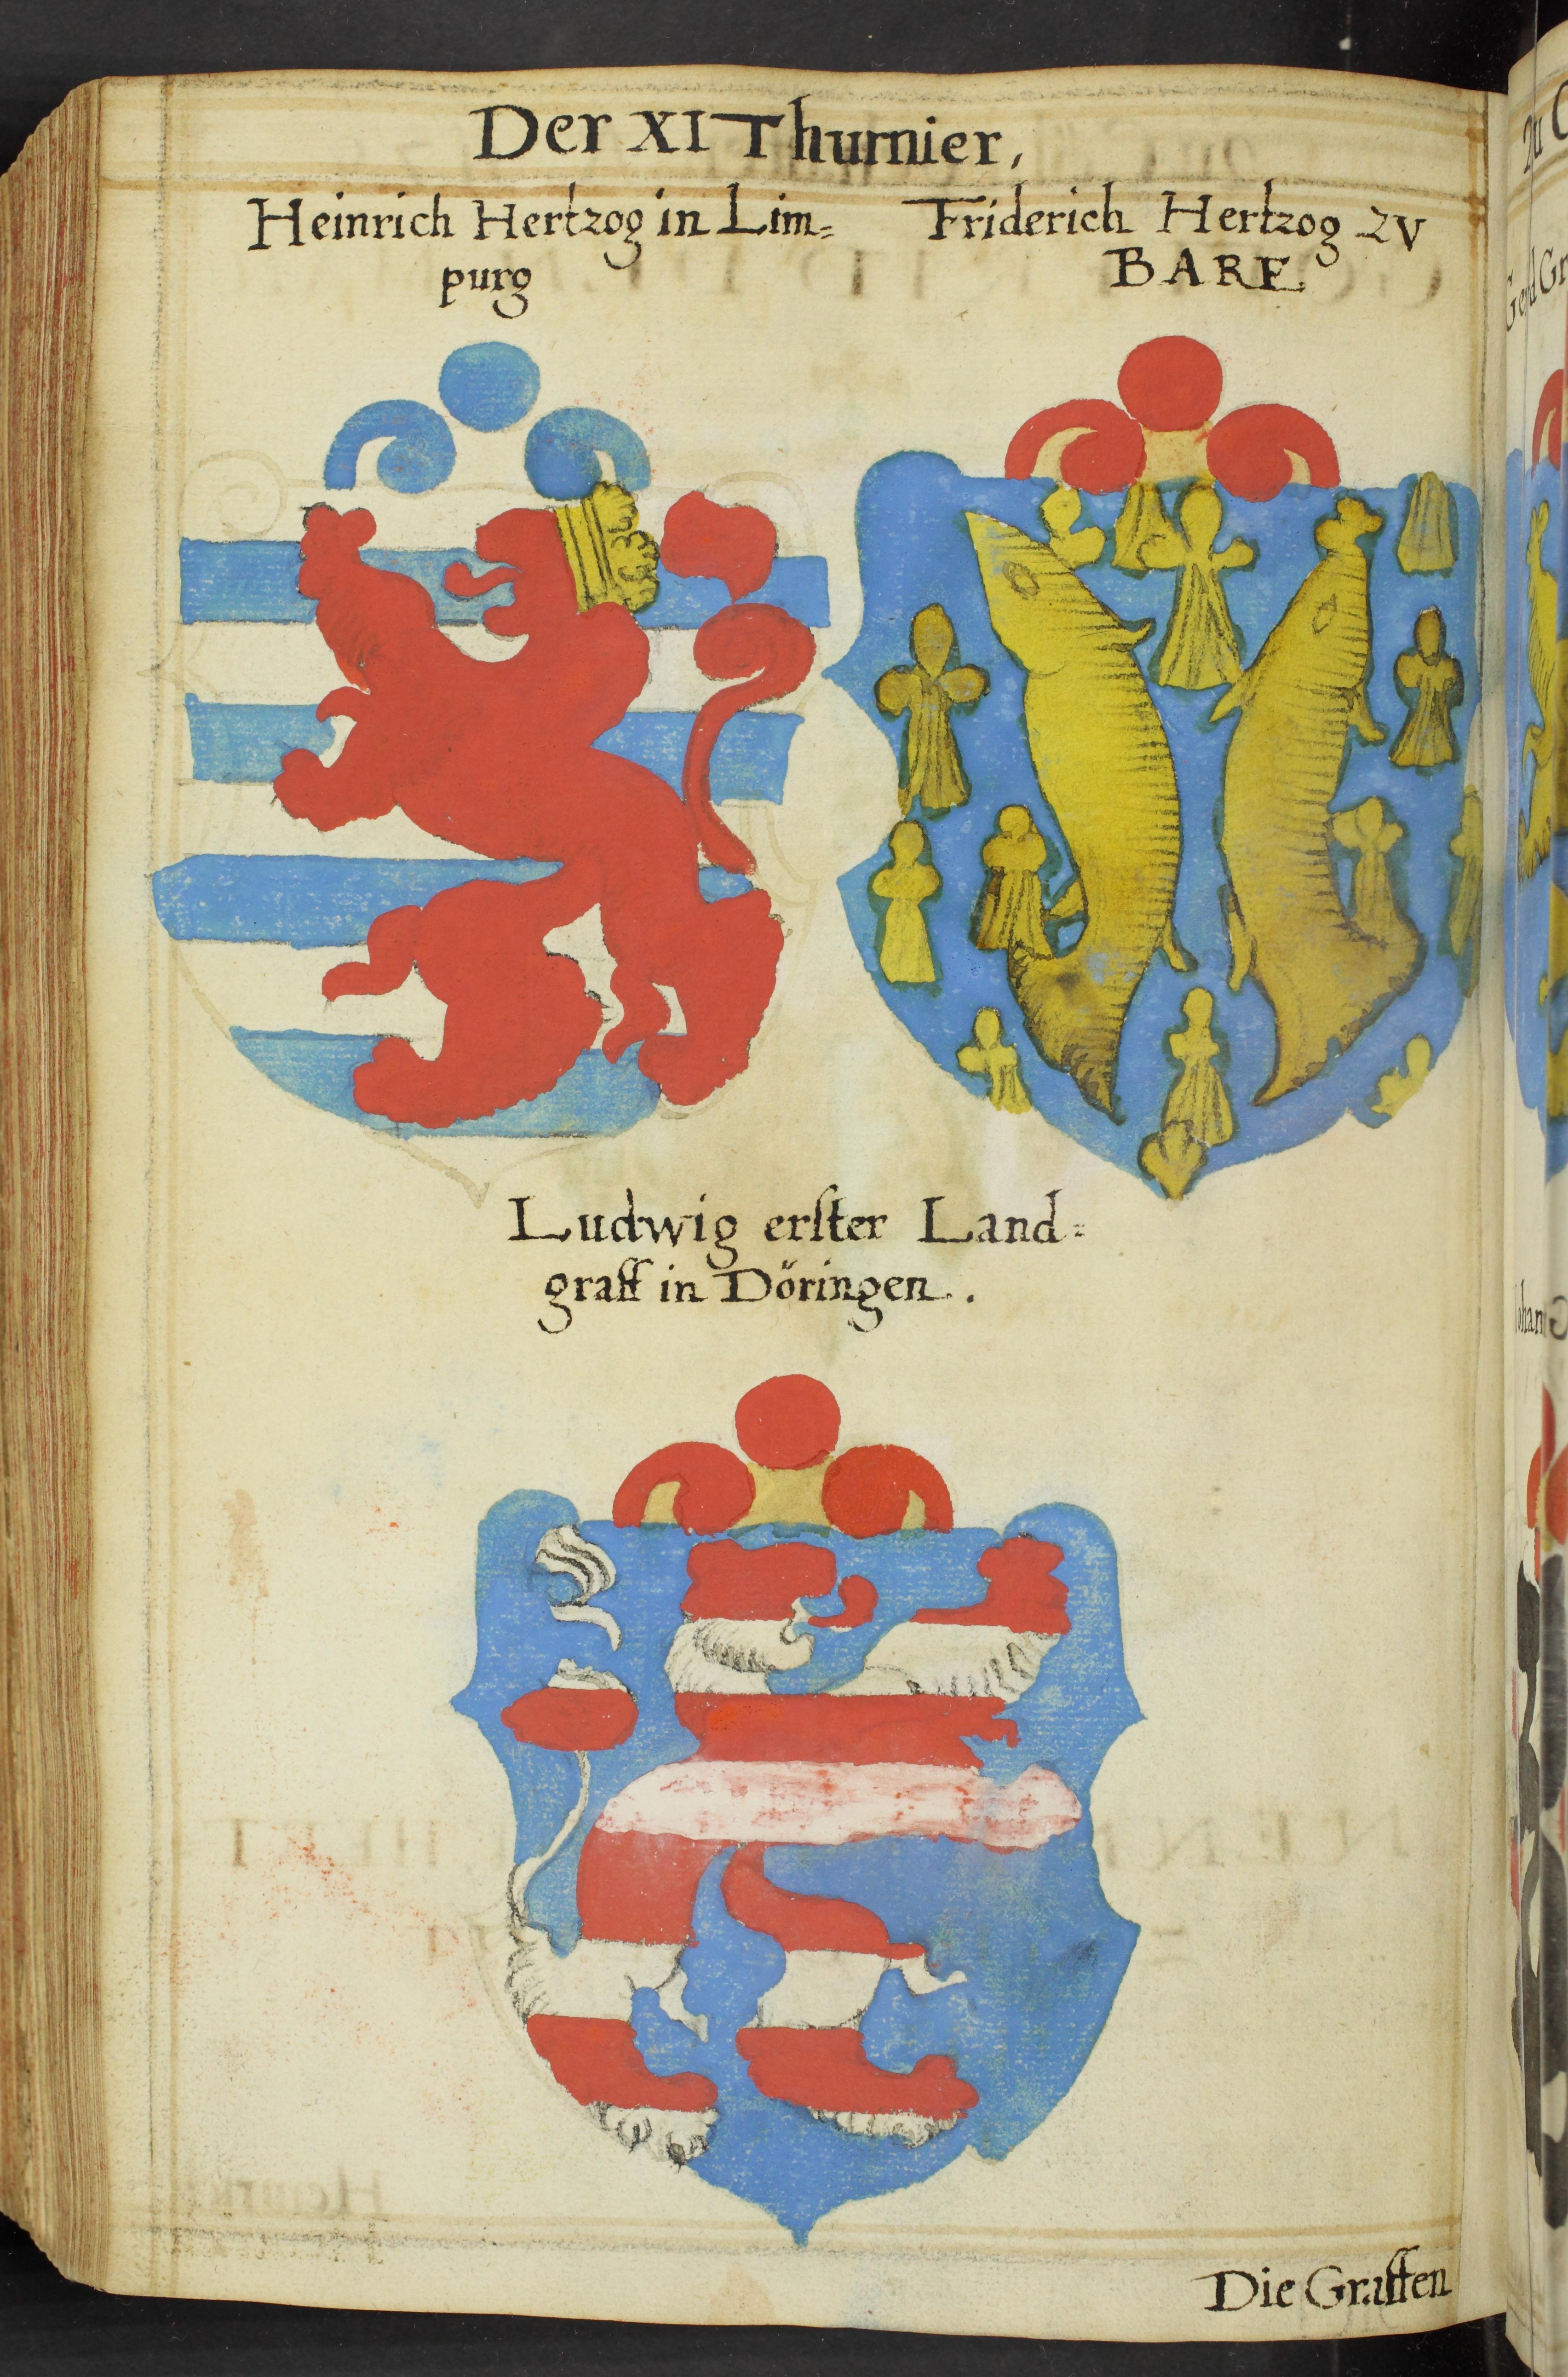 Der XI Thurnier,
Heinrich Hertzog in Lim=
purg
Friderich Hertzog zv
BARE
Ludwig erſter Land=
graff in Döringen.
Die Graffen